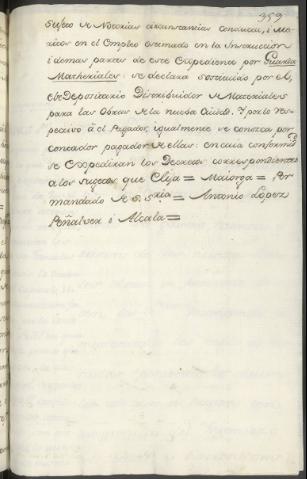 359
Sujeto de Notorias circunstancias conducta, i Me-
ritos en el Empleo creado en la Instruccion
i demas partes de este Expediente por Guarda
Matheriales: se declara sostituido por el
de Depositario Distribuidor de Materiales
para las Obras de la nueba Ciudad. Y por lo res-
pectivo à el Pagador, igualmente se conozca por
contador pagador de ellas: en cuia conformidd
se Expediran los Decretos correspondientes
a los sugetos que Elija = Maiorga = Por
mandado de S. Sria = Antonio Lopez
Peñalver i Alcala =